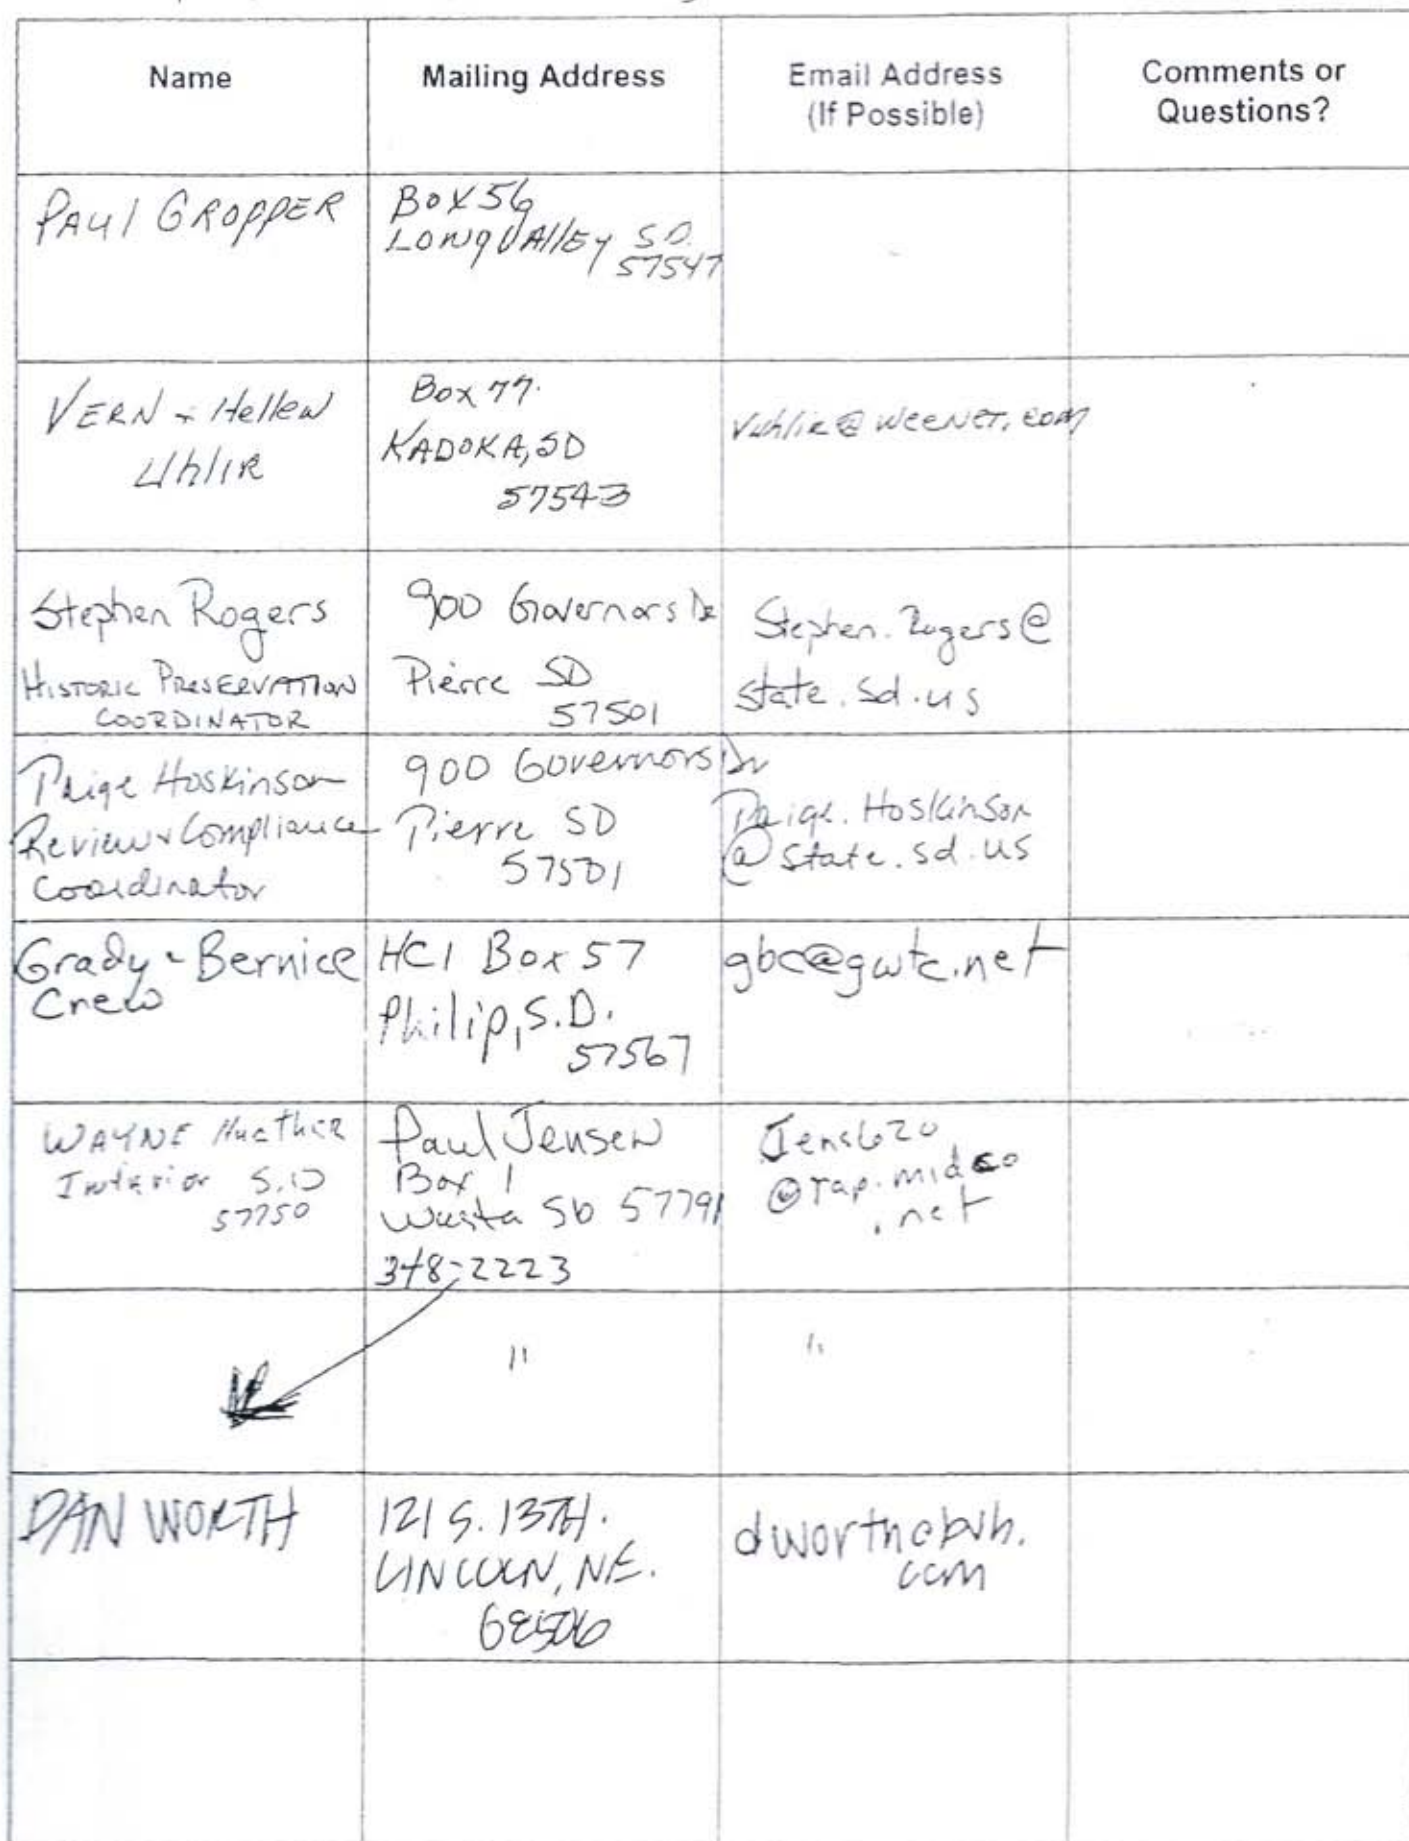 Name
Mailing Address
Email Address
(If Possible)
Comments or
Questions?
PAUL GROPPER
Box 56
LONGVAllEy S.D.
57547
VERN + Hellen
Uhlir
Box 77
KADOKA, SD
57543
Vuhlir@WCENET.COM
Stephen Rogers
HISTORIC PRESERVATION
COORDINATOR
900 Governors Dr
Pierre SD
57501
Stephen.Rogers@
state.sd.us
Paige Hoskinson
Review & Compliance
Coordinator
900 Governors Dr
Pierre SD
57501
Paige.Hoskinson
@state.sd.us
Grady & Bernice
Crew
HC1 Box 57
Philip, S.D.
57567
gbc@gwtc.net
WAYNE Huether
Interior S.D
57750
Paul Jensen
Box 1
Wasta SD 57791
348-2223
Jens620
@rap.midco
.net
"
"
DAN WORTH
121 S. 13TH.
LINCOLN, NE.
dworth@bvh.
com